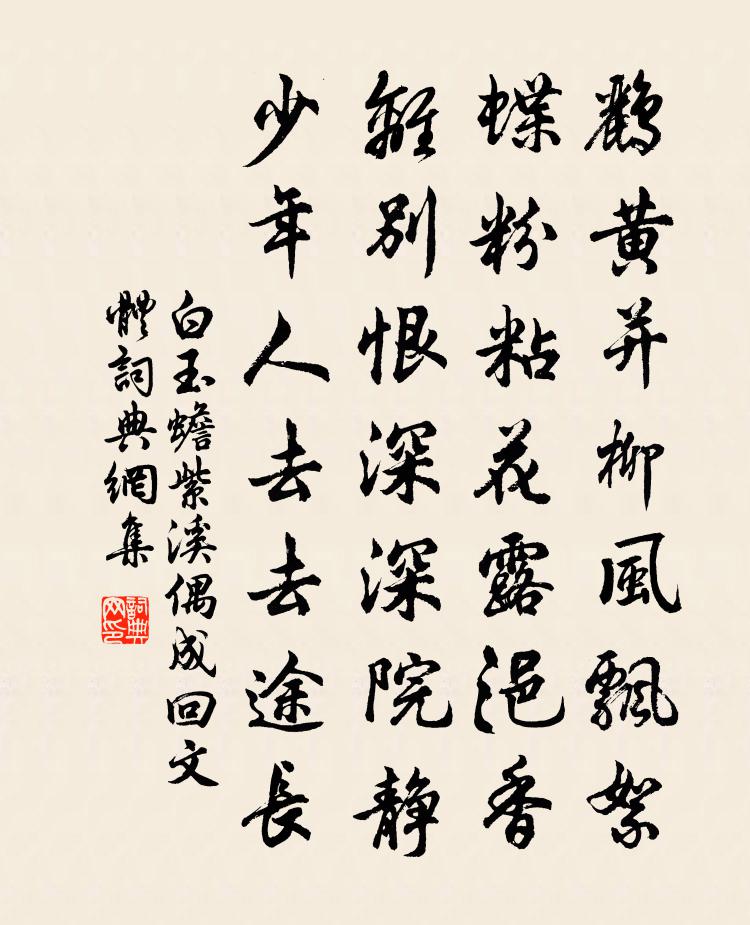 鸝黃并柳風飄絮
蝶粉粘花露浥香
離別恨深深院靜
少年人去去途長
白玉蟾紫溪偶成回文
體詞典網集
詞典
网印